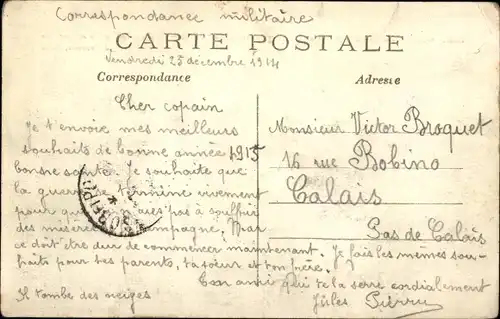 Correspondance militaire
CARTE POSTALE
Vendredi 25 décembre 1914
Correspondance
Adresse
Cher copain
Je t'envoie mes meilleurs
souhaits de bonne année 1915
bonne santé. Je souhaite que
la guerre termine vivement
pour que pas à souffrir
des misères campagne, car
ce doit être dur de commencer maintenant. Je fais les mêmes sou-
haits pour tes parents, ta sœur et ton frère.
Ton ami qui te la serre cordialement
Il tombe des neiges
Jules Pierru
Monsieur Victor Broquet
16 rue Bobino
Calais
Pas de Calais